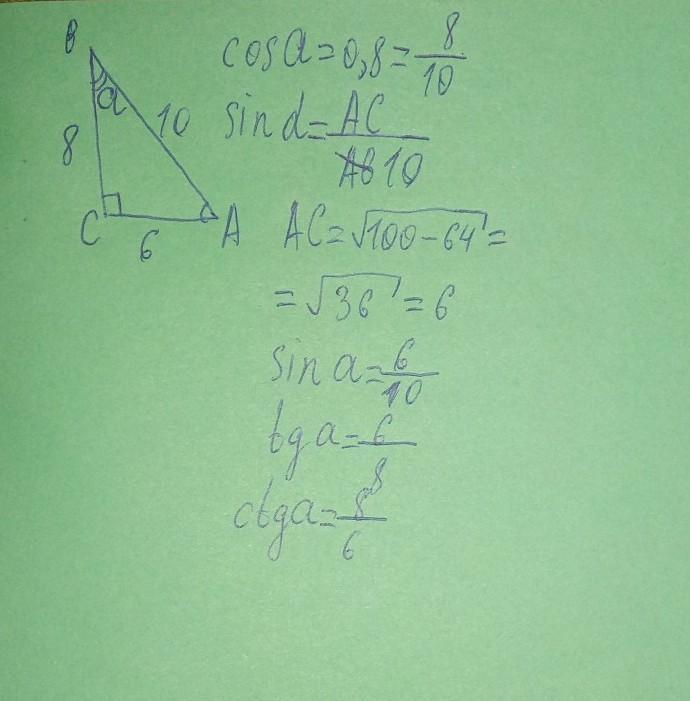 B
a
8
10
C
6
A
cos a = 0,8 = 8/10
sin d = AC/10
AC = √100-64 =
= √36 = 6
sin a = 6/10
tg a = 6/8
ctg a = 8/6